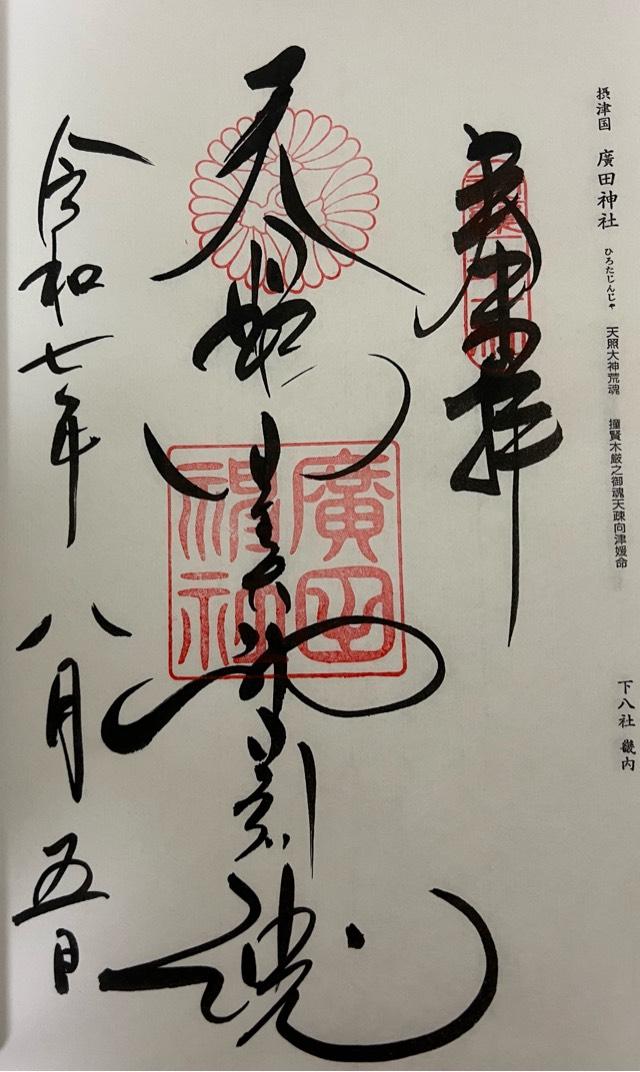 摂津国 廣田神社 ひろたじんじゃ 天照大神荒魂 撞賢木厳之御魂天疎向津媛命
下八社 畿内
拝
天照
魂
廣田神社
令和七年八月五日